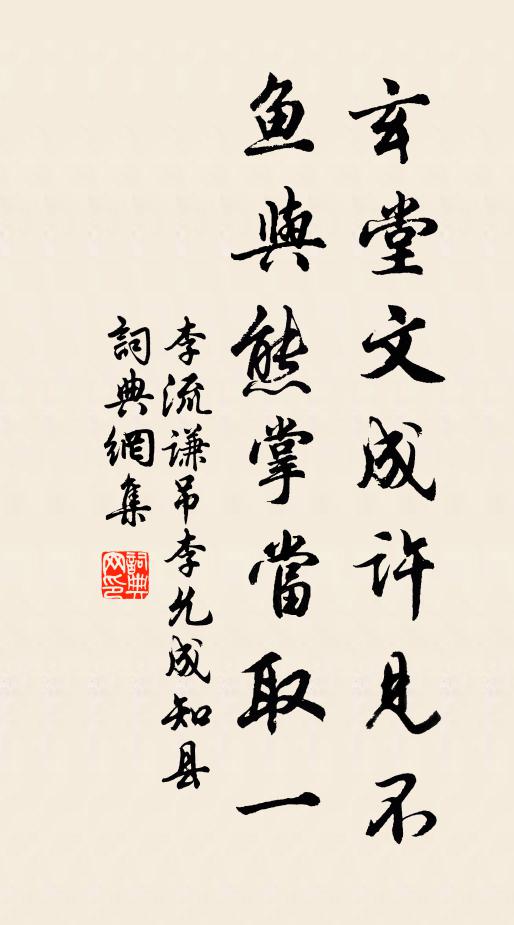 玄堂文成许見不
鱼與熊掌當取一
李流谦吊李允成知县
詞典網集
詞典网印